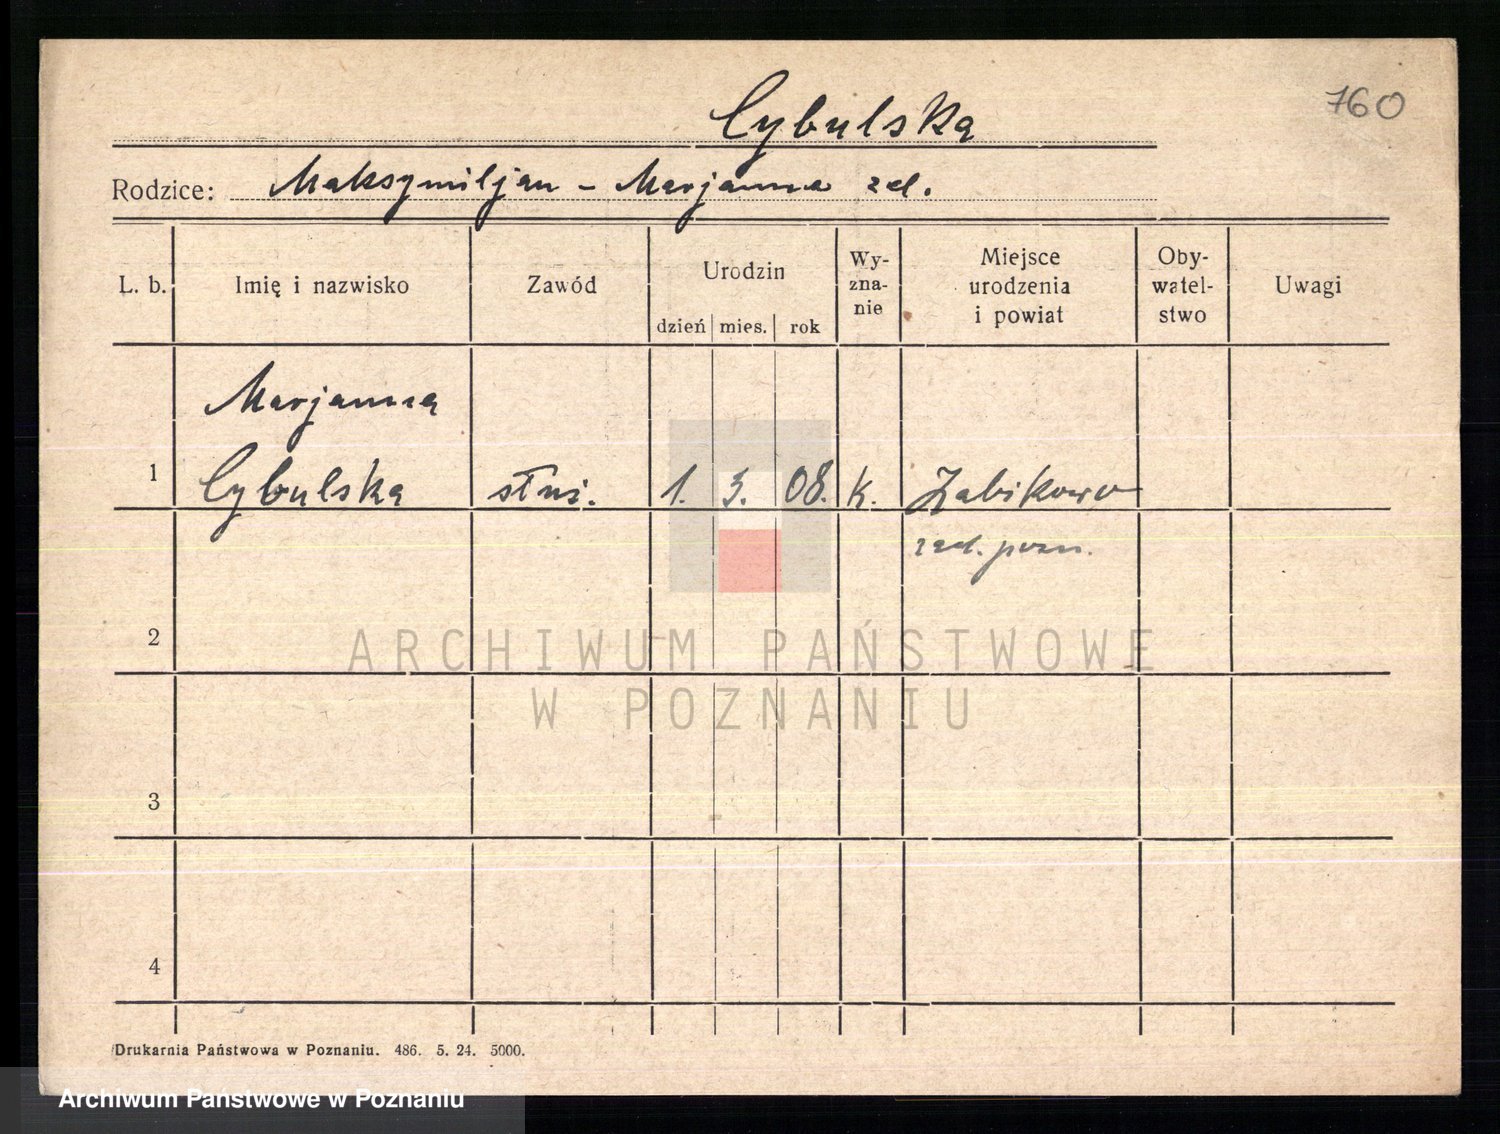 760
Cybulska
Rodzice: Maksymiljan - Marjanna
L. b. Imię i nazwisko Zawód Urodzin dzień mies. rok Wy-zna-nie Miejsce urodzenia i powiat Oby-watel-stwo Uwagi
Marjanna
1 Cybulska służ. 1. 3. 08. k. Żabikowo
pozn.
2
ARCHIWUM PAŃSTWOWE
W POZNANIU
3
4
Drukarnia Państwowa w Poznaniu. 486. 5. 24. 5000.
Archiwum Państwowe w Poznaniu